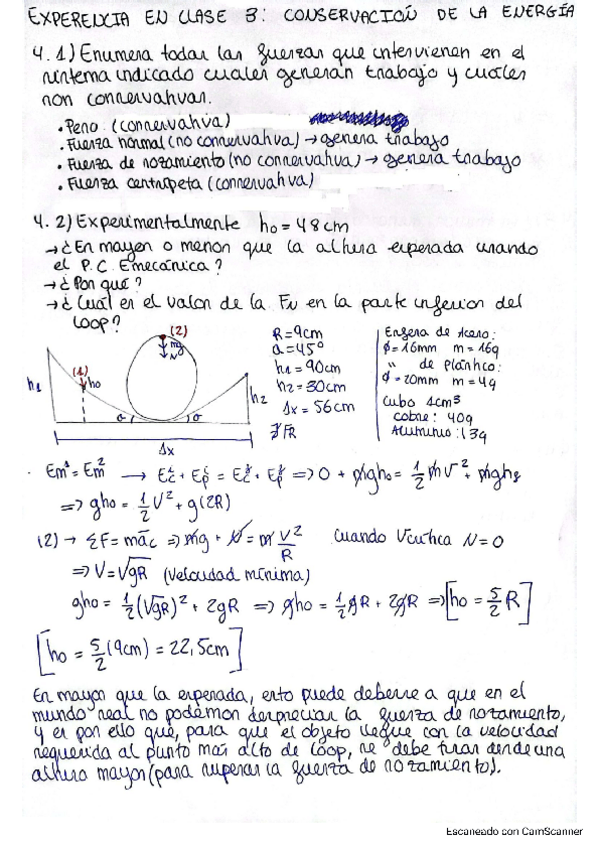 EXPERENCIA EN CLASE 3: CONSERVACIÓN DE LA ENERGÍA
4.1) Enumera todas las fuerzas que intervienen en el
sistema indicado cuales generan trabajo y cuales
son conservativas.
• Peso (conservativa)
• Fuerza normal (no conservativa) → genera trabajo
• Fuerza de rozamiento (no conservativa) → genera trabajo
• Fuerza centrípeta (conservativa)
4.2) Experimentalmente h₀ = 48cm
→ ¿Es mayor o menor que la altura esperada usando
el P.C. Emecánica?
→ ¿Por qué?
→ ¿Cuál es el valor de la FN en la parte inferior del
loop?
(2)
mg
N
(1)
h₀
h₁
h₂
Δx
R = 9cm
α = 45°
h₁ = 90cm
h₂ = 30cm
Δx = 56cm
FR
Esfera de Acero:
ϕ = 16mm m = 16g
" de plástico:
ϕ = 20mm m = 4g
Cubo 1cm³
cobre: 40g
Aluminio: 13g
Em¹ = Em² → Ec + Ep = Ec + Ep ⇒ 0 + mgh₀ = 1/2 mv² + mgh₂
⇒ gh₀ = 1/2 V² + g(2R)
(2) → ΣF = mac ⇒ mg + N = m V²/R Cuando Vcrítica N = 0
⇒ V = √gR (velocidad mínima)
gh₀ = 1/2 (√gR)² + 2gR ⇒ gh₀ = 1/2 gR + 2gR ⇒ [h₀ = 5/2 R]
[h₀ = 5/2 (9cm) = 22,5cm]
Es mayor que la esperada, esto puede deberse a que en el
mundo real no podemos despreciar la fuerza de rozamiento,
y es por ello que, para que el objeto llegue con la velocidad
requerida al punto mas alto de loop, se debe tirar desde una
altura mayor (para superar la fuerza de rozamiento).
Escaneado con CamScanner